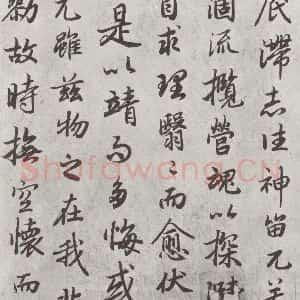 底滯志往神留兀若
涸流攬營魂以探賾
自求理翳々而愈伏
是以靖而多悔或
尤雖茲物之在我非
勠故時撫空懷而
Shufawang.CN